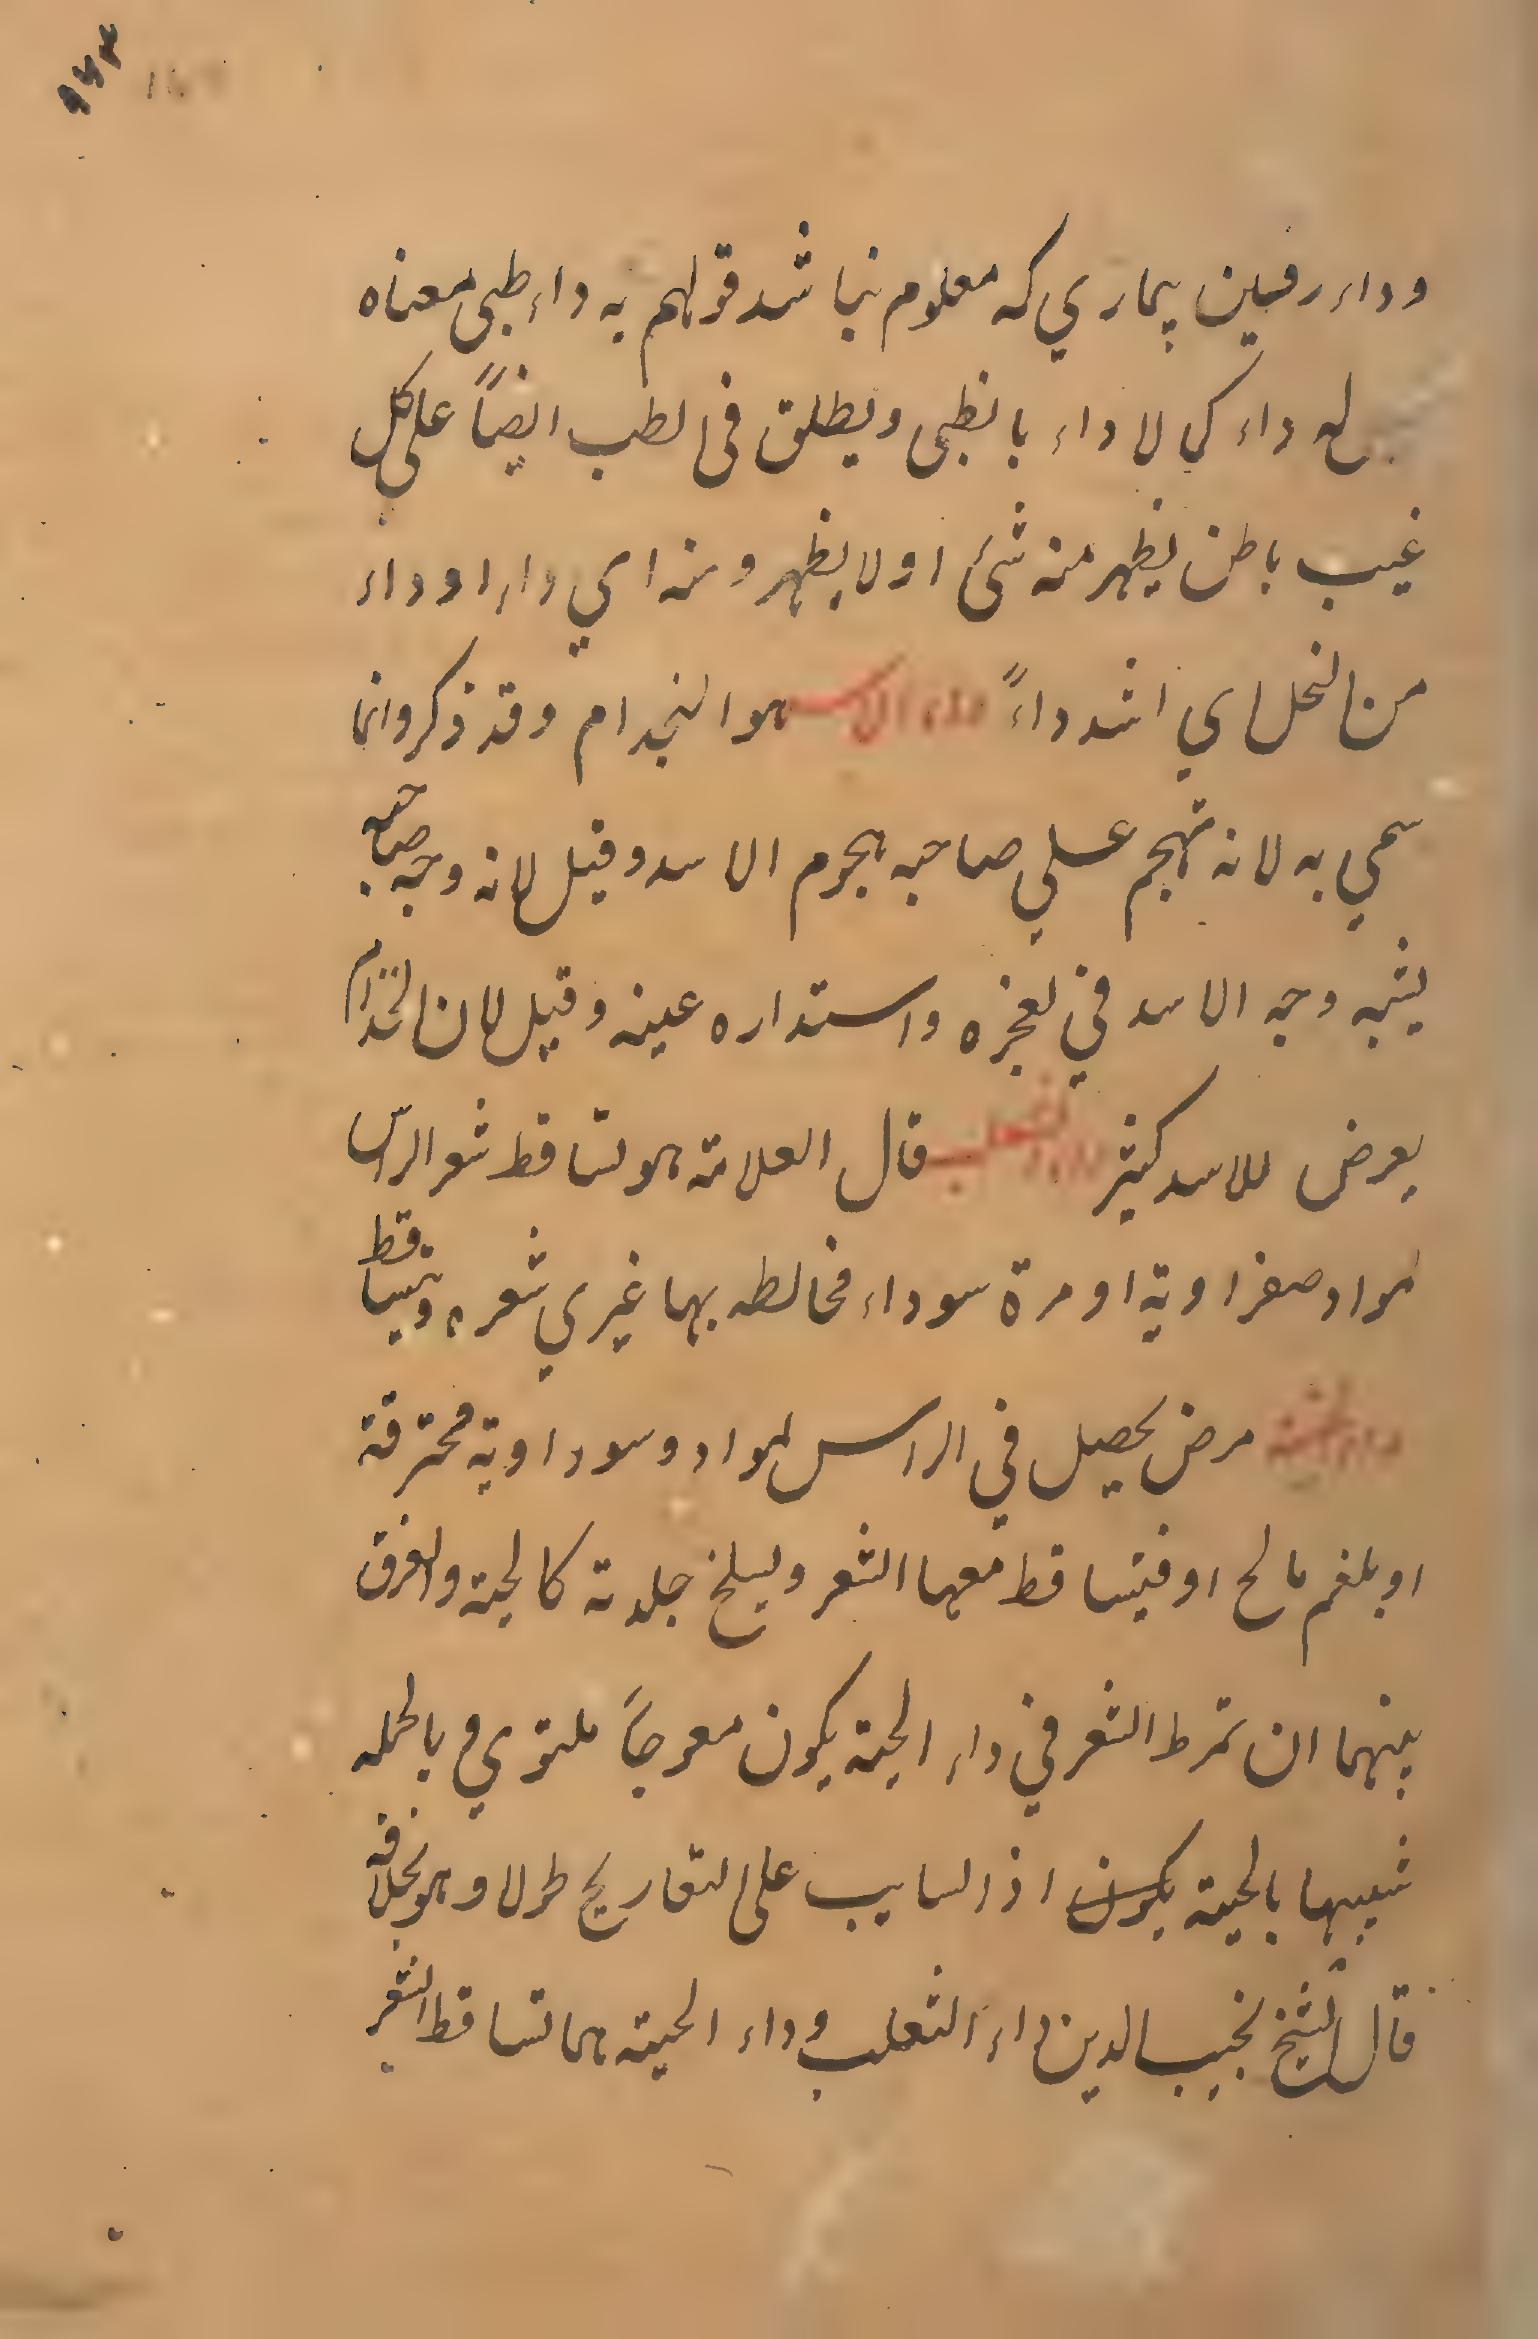 ۱۶۳
وداء رفين بیماري که معلوم نباشد قولهم به داء ظبي معناه
له داء كما لا داء بالظبي ويطلق في الطب ايضاً على كل
غيب باطن يظهر منه شئ اولا يظهر ومنه اي داء ادوداء
من النحل اي اشد داءً داء الاسد هو الجذام وقد ذكر وانما
سمي به لانه تهجم علي صاحبه هجوم الاسد وقيل لانه وجه صاحبه
يشبه وجه الاسد في واستداره عينه وقيل لان الجذام
يعرض للاسد كثير داء الثعلب قال العلامة هو تساقط شعر الراس
لمواد صفراوية او مرة سوداء مخالطه بها غيري شعره وتتساقط
داء الحية مرض يحصل في الراس لمواد وسوداوية محترقة
او بلغم مالح او فيتساقط معها الشعر ويسلخ جلدته كالحية والفرق
بينهما ان تمرط الشعر في داء الحية يكون معوجاً ملتوي وبالجمله
شبيها بالحية يكون اذ السايب على التعاريج طولا وهو بخلافه
قال الشيخ نجيب الدين داء الثعلب وداء الحية هما تساقط الشعر